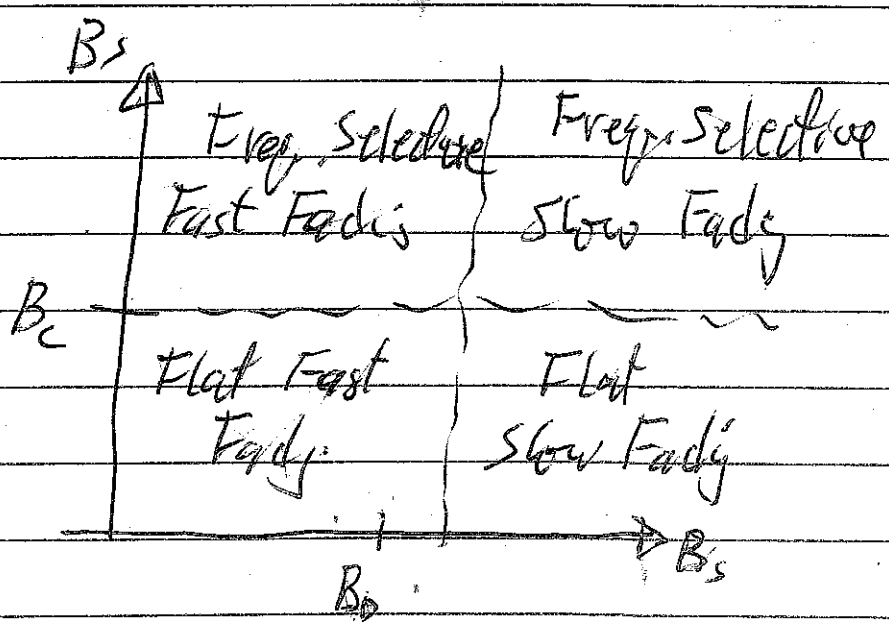 Bs
Freq. Selective
Fast Fading
Freq. Selective
Slow Fading
Bc
Flat Fast
Fading
Flat
Slow Fading
BD
Bs